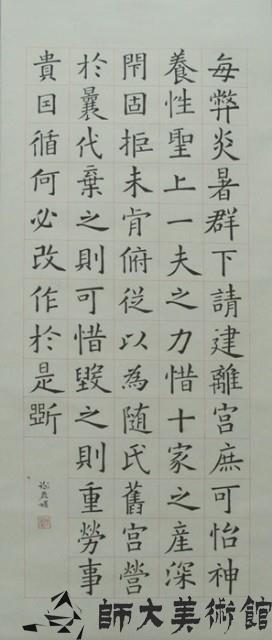 每弊炎暑群下請建離宮庶可怡神
養性聖上一夫之力惜十家之產深
閇固拒未肯俯從以為随氏舊宮營
於曩代棄之則可惜毀之則重勞事
貴因循何必改作於是斵
師大美術館